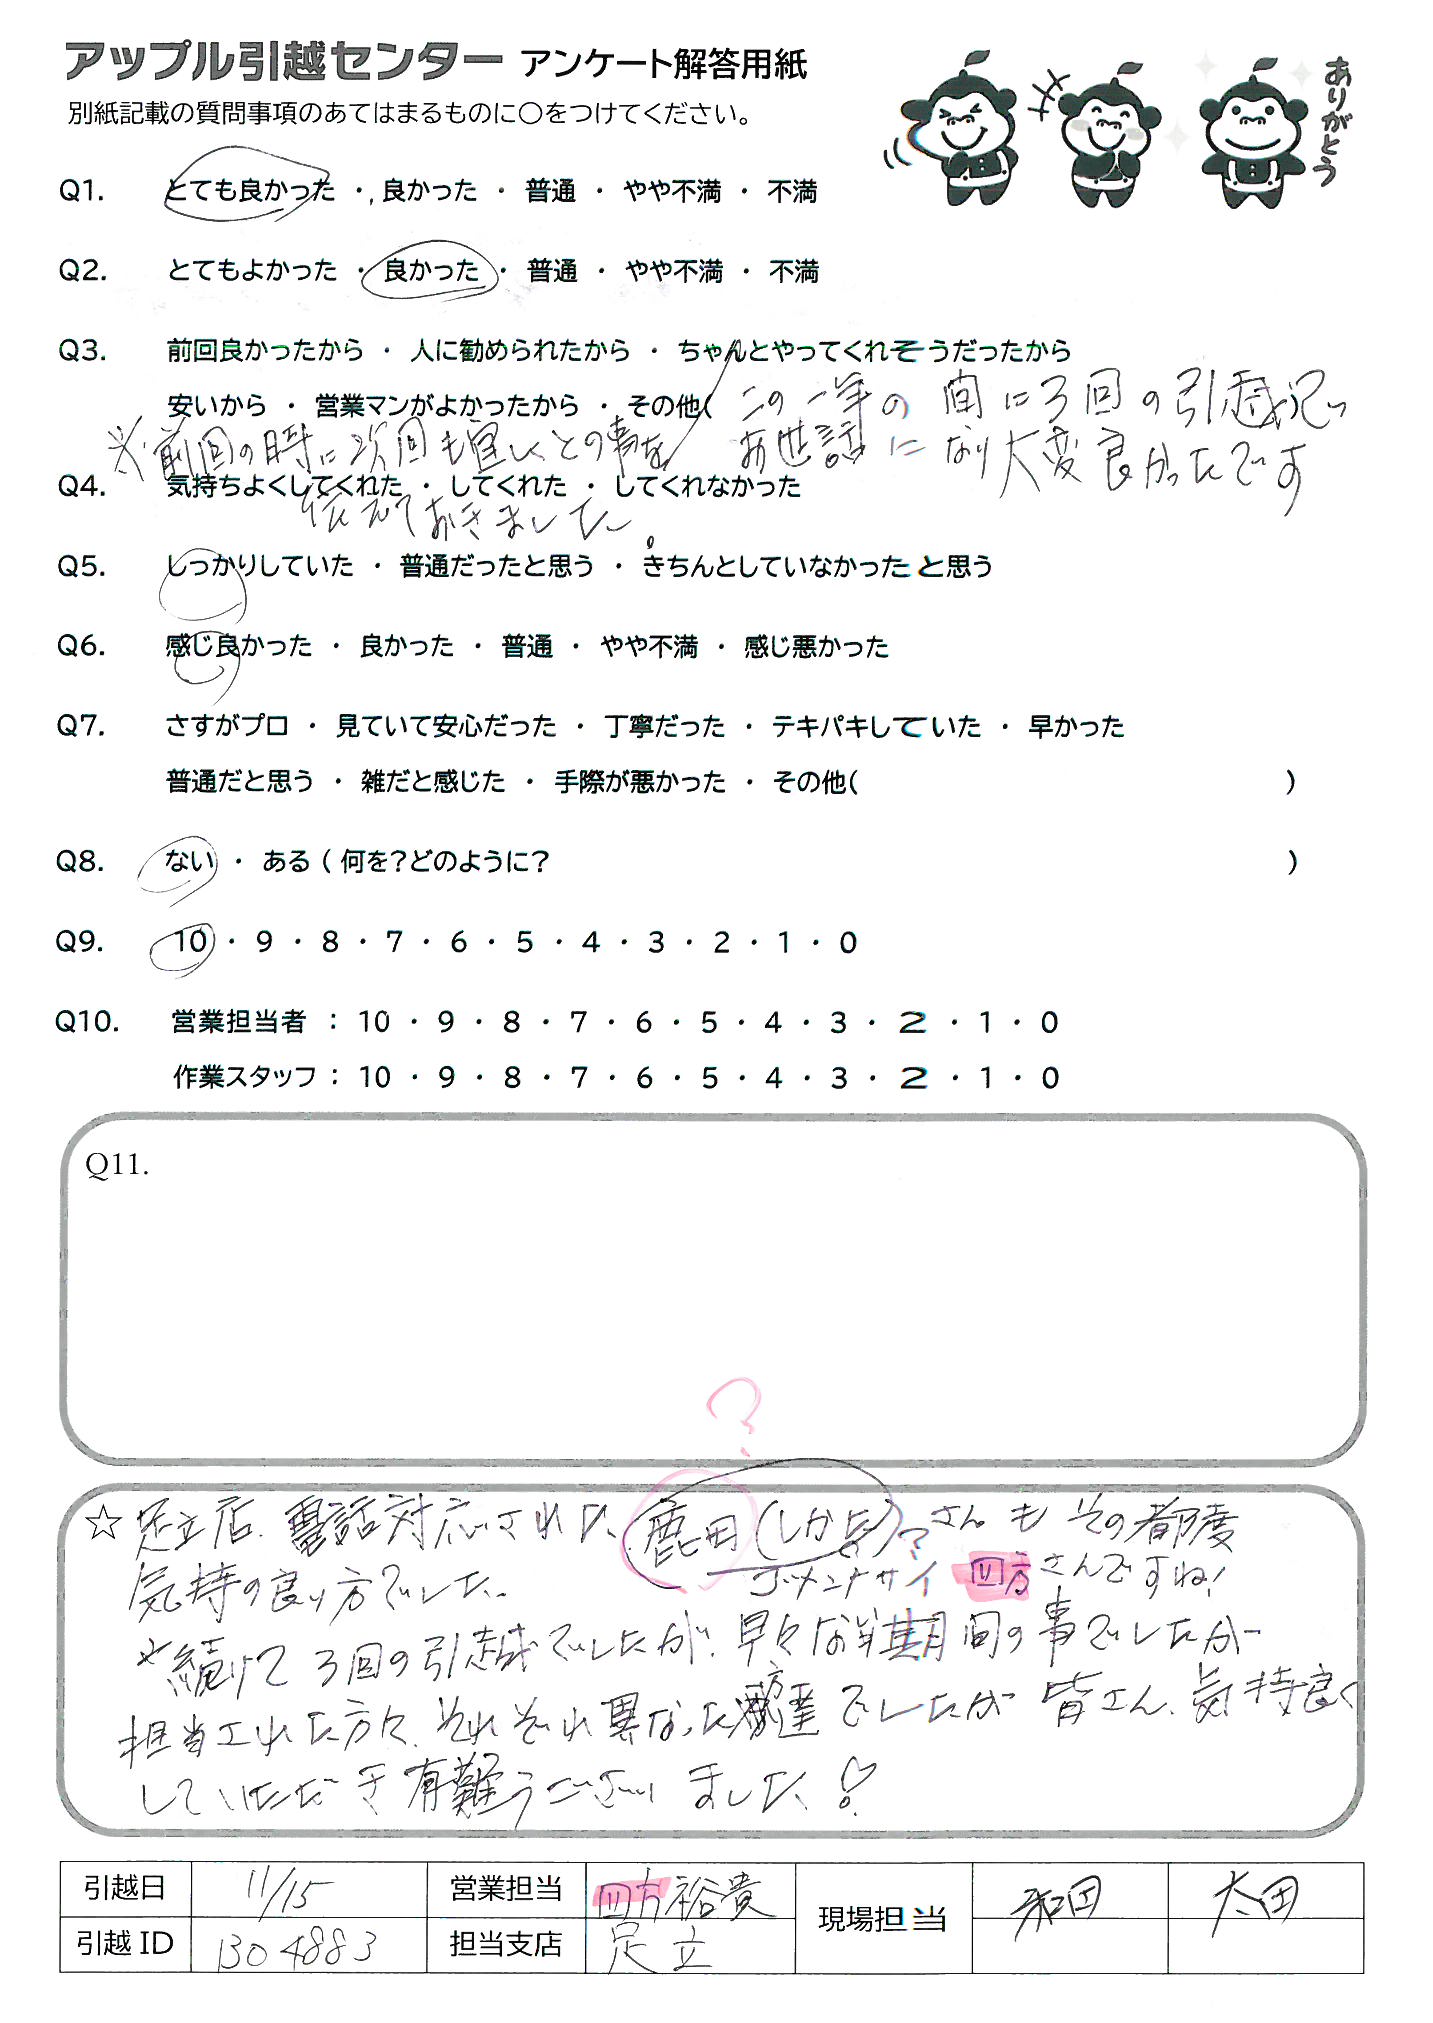 アップル引越センター アンケート解答用紙
別紙記載の質問事項のあてはまるものに○をつけてください。
ありがとう
Q1. とても良かった ・ 良かった ・ 普通 ・ やや不満 ・ 不満
Q2. とてもよかった ・ 良かった ・ 普通 ・ やや不満 ・ 不満
Q3. 前回良かったから ・ 人に勧められたから ・ ちゃんとやってくれそうだったから
安いから ・ 営業マンがよかったから ・ その他( この一年の間に3回の引越し
お世話になり大変良かったです
※前回の時に次回も宜しくとの事を
伝えておきました。
Q4. 気持ちよくしてくれた ・ してくれた ・ してくれなかった
Q5. しっかりしていた ・ 普通だったと思う ・ きちんとしていなかったと思う
Q6. 感じ良かった ・ 良かった ・ 普通 ・ やや不満 ・ 感じ悪かった
Q7. さすがプロ ・ 見ていて安心だった ・ 丁寧だった ・ テキパキしていた ・ 早かった
普通だと思う ・ 雑だと感じた ・ 手際が悪かった ・ その他( )
Q8. ない ・ ある ( 何を?どのように? )
Q9. 10 ・ 9 ・ 8 ・ 7 ・ 6 ・ 5 ・ 4 ・ 3 ・ 2 ・ 1 ・ 0
Q10. 営業担当者 : 10 ・ 9 ・ 8 ・ 7 ・ 6 ・ 5 ・ 4 ・ 3 ・ 2 ・ 1 ・ 0
作業スタッフ : 10 ・ 9 ・ 8 ・ 7 ・ 6 ・ 5 ・ 4 ・ 3 ・ 2 ・ 1 ・ 0
Q11.
?
☆ 足立店、電話対応された、鹿田(しかた)?さんもその都度
ゴメンナサイ 四方さんですね!
気持の良い方でした。
※続けて3回の引越でしたが、早々な半期間の事でしたが
担当された方々、それぞれ異なった方達でしたが皆さん、気持良く
していただき有難うございました!
引越日 11/15 営業担当 四方裕貴 現場担当 和田 太田
引越ID 1304883 担当支店 足立